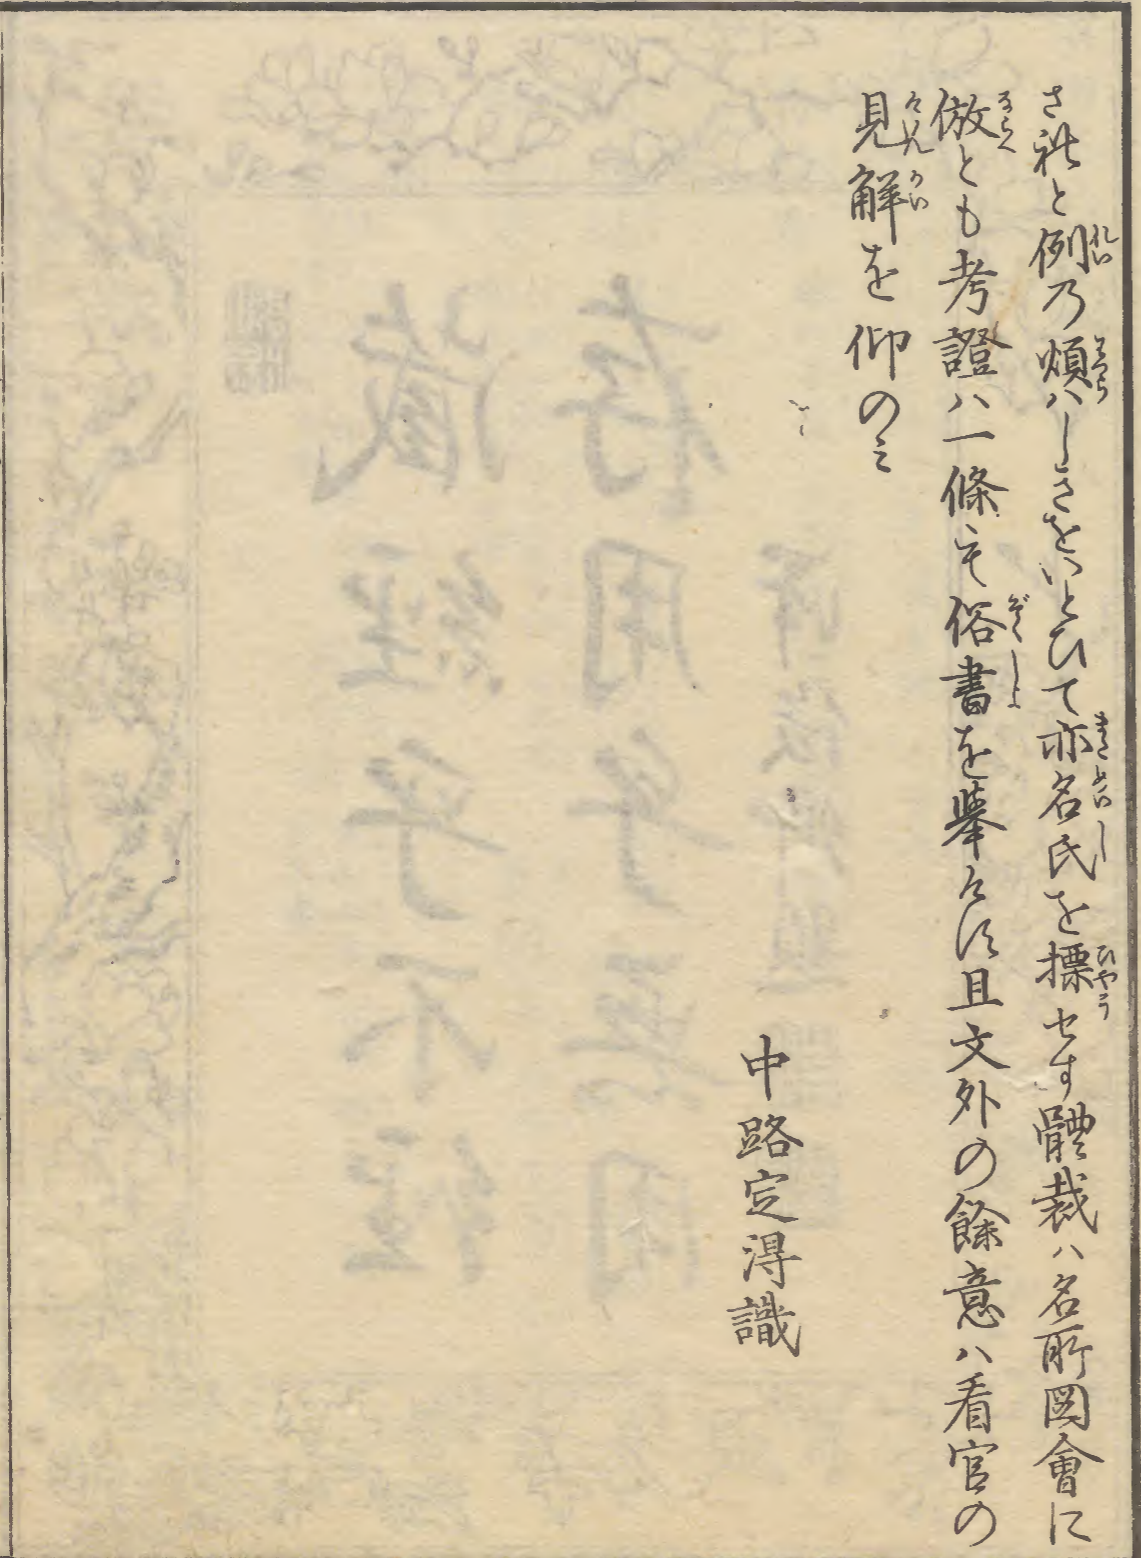 されと例乃煩ハしさをいとひて亦名氏を標せす體裁ハ名所図會に
倣とも考證ハ一條も俗書を擧けす且文外の餘意ハ看官の
見解を仰のミ
中路定得識